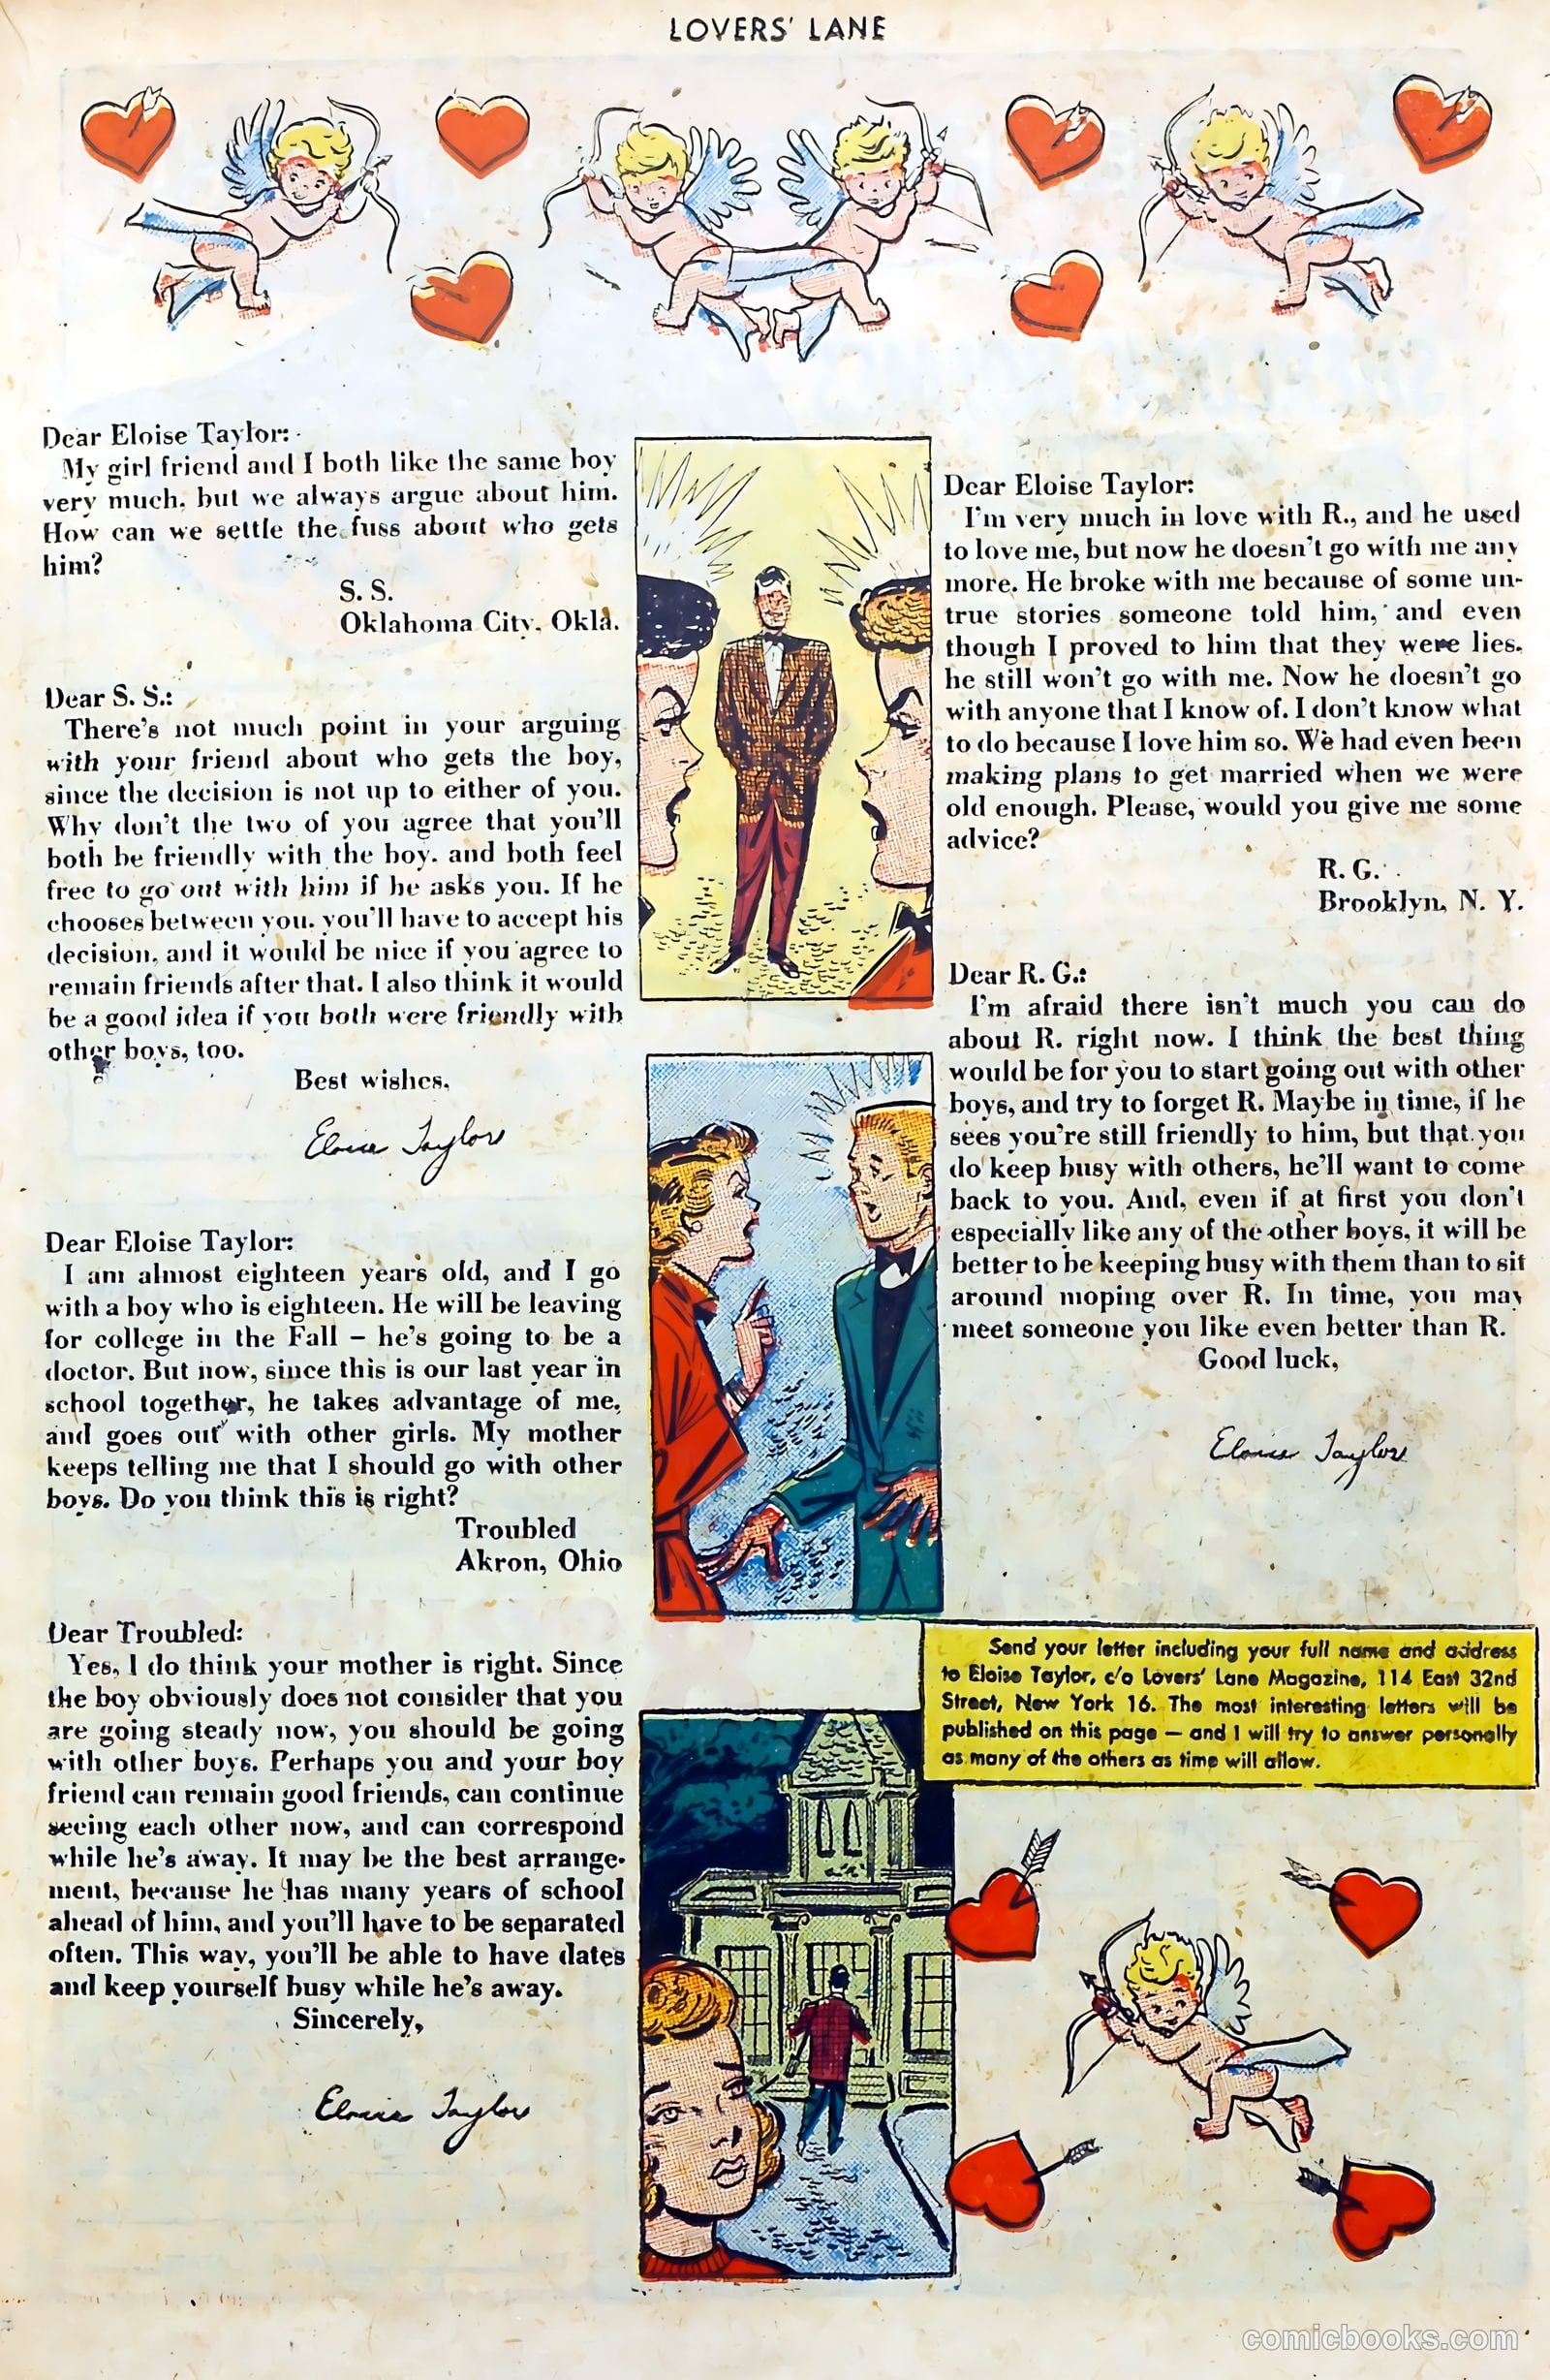 LOVERS' LANE
Dear Eloise Taylor:
My girl friend and I both like the same boy
very much, but we always argue about him.
How can we settle the fuss about who gets
him?
S. S.
Oklahoma City, Okla.
Dear S. S.:
There's not much point in your arguing
with your friend about who gets the boy,
since the decision is not up to either of you.
Why don't the two of you agree that you'll
both be friendly with the boy, and both feel
free to go out with him if he asks you. If he
chooses between you, you'll have to accept his
decision, and it would be nice if you agree to
remain friends after that. I also think it would
be a good idea if you both were friendly with
other boys, too.
Best wishes,
Eloise Taylor
Dear Eloise Taylor:
I am almost eighteen years old, and I go
with a boy who is eighteen. He will be leaving
for college in the Fall – he's going to be a
doctor. But now, since this is our last year in
school together, he takes advantage of me,
and goes out with other girls. My mother
keeps telling me that I should go with other
boys. Do you think this is right?
Troubled
Akron, Ohio
Dear Troubled:
Yes, I do think your mother is right. Since
the boy obviously does not consider that you
are going steady now, you should be going
with other boys. Perhaps you and your boy
friend can remain good friends, can continue
seeing each other now, and can correspond
while he's away. It may be the best arrange-
ment, because he has many years of school
ahead of him, and you'll have to be separated
often. This way, you'll be able to have dates
and keep yourself busy while he's away.
Sincerely,
Eloise Taylor
Dear Eloise Taylor:
I'm very much in love with R., and he used
to love me, but now he doesn't go with me any
more. He broke with me because of some un-
true stories someone told him, and even
though I proved to him that they were lies,
he still won't go with me. Now he doesn't go
with anyone that I know of. I don't know what
to do because I love him so. We had even been
making plans to get married when we were
old enough. Please, would you give me some
advice?
R. G.
Brooklyn, N. Y.
Dear R. G.:
I'm afraid there isn't much you can do
about R. right now. I think the best thing
would be for you to start going out with other
boys, and try to forget R. Maybe in time, if he
sees you're still friendly to him, but that you
do keep busy with others, he'll want to come
back to you. And, even if at first you don't
especially like any of the other boys, it will be
better to be keeping busy with them than to sit
around moping over R. In time, you may
meet someone you like even better than R.
Good luck,
Eloise Taylor
Send your letter including your full name and address
to Eloise Taylor, c/o Lovers' Lane Magazine, 114 East 32nd
Street, New York 16. The most interesting letters will be
published on this page — and I will try to answer personally
as many of the others as time will allow.
comicbooks.com